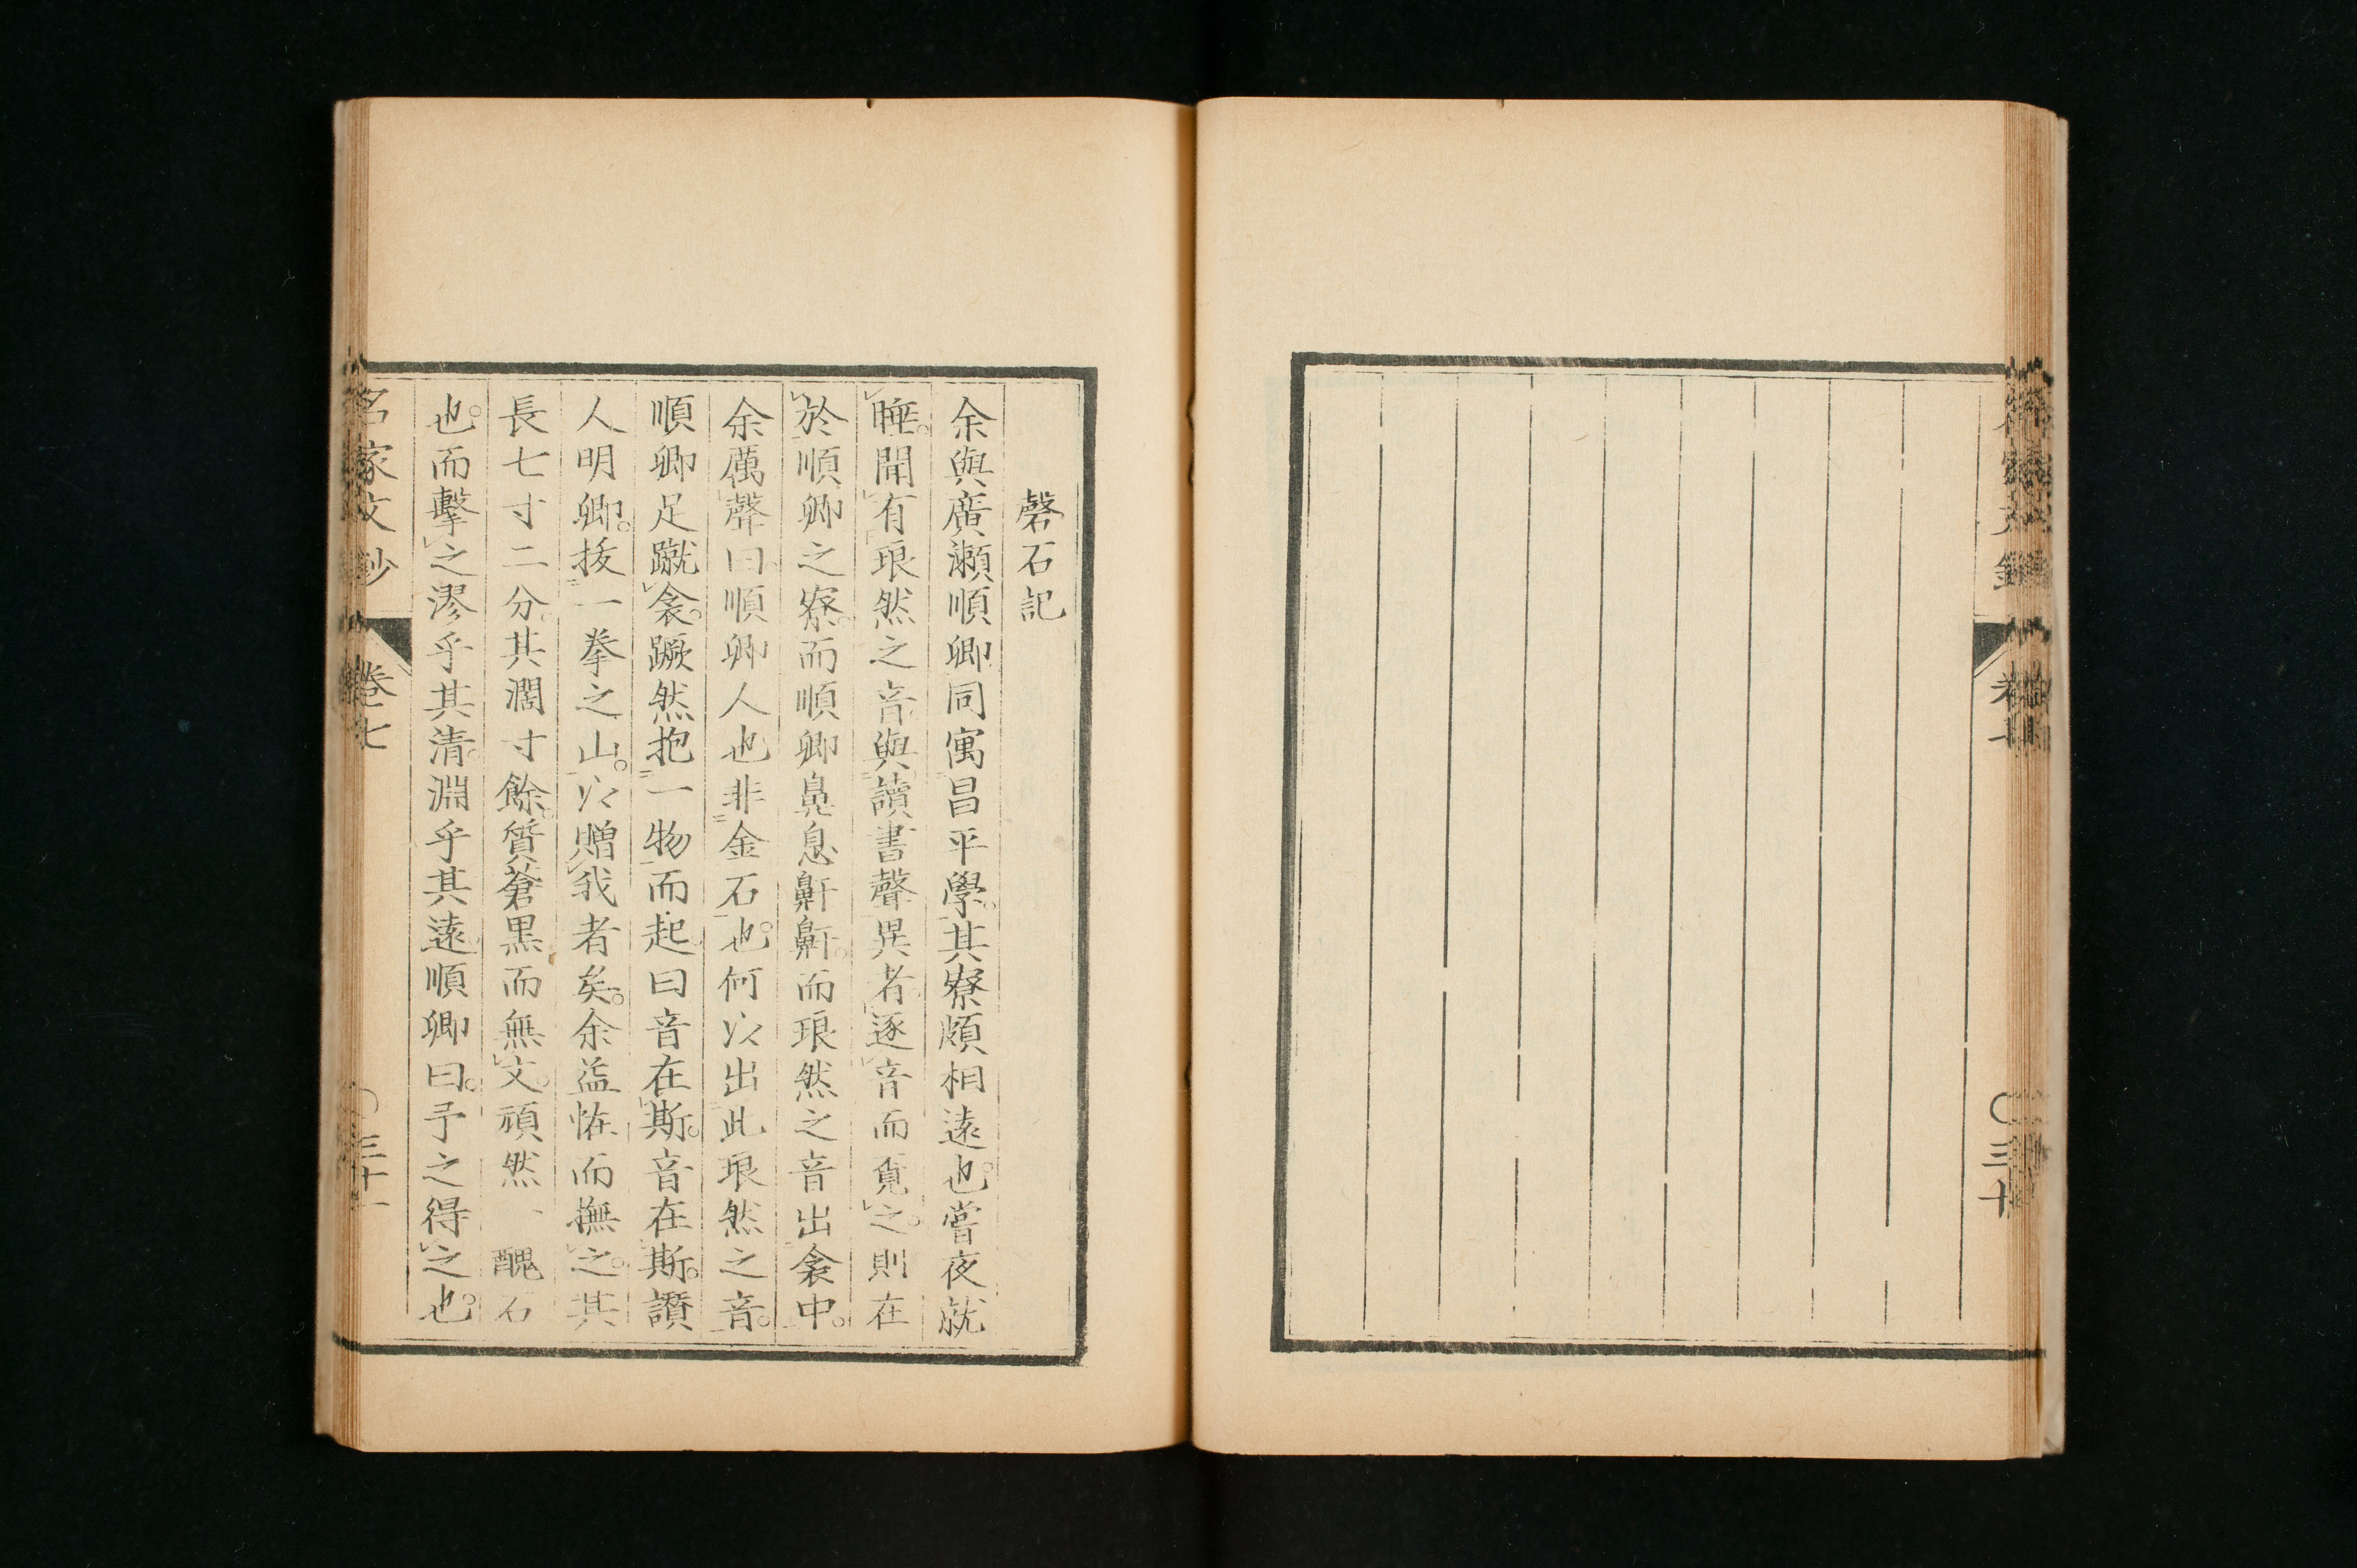 卷七
〇三十
磬石記
余與廣瀬順卿同寓昌平學其寮頗相遠也嘗夜就
睡聞有琅然之音與讀書聲異者逐音而覓之則在
於順卿之寮而順卿鼻息鼾鼾而琅然之音出衾中
余厲聲曰順卿人也非金石也何以出此琅然之音
順卿足蹴衾蹶然抱一物而起曰音在斯音在斯讚
人明卿抜一拳之山以贈我者矣余益恠而撫之其
長七寸二分其濶寸餘質蒼黒而無文頑然、醜石
也而擊之漻乎其清淵乎其遠順卿曰予之得之也
名家文抄
卷七
〇三十一